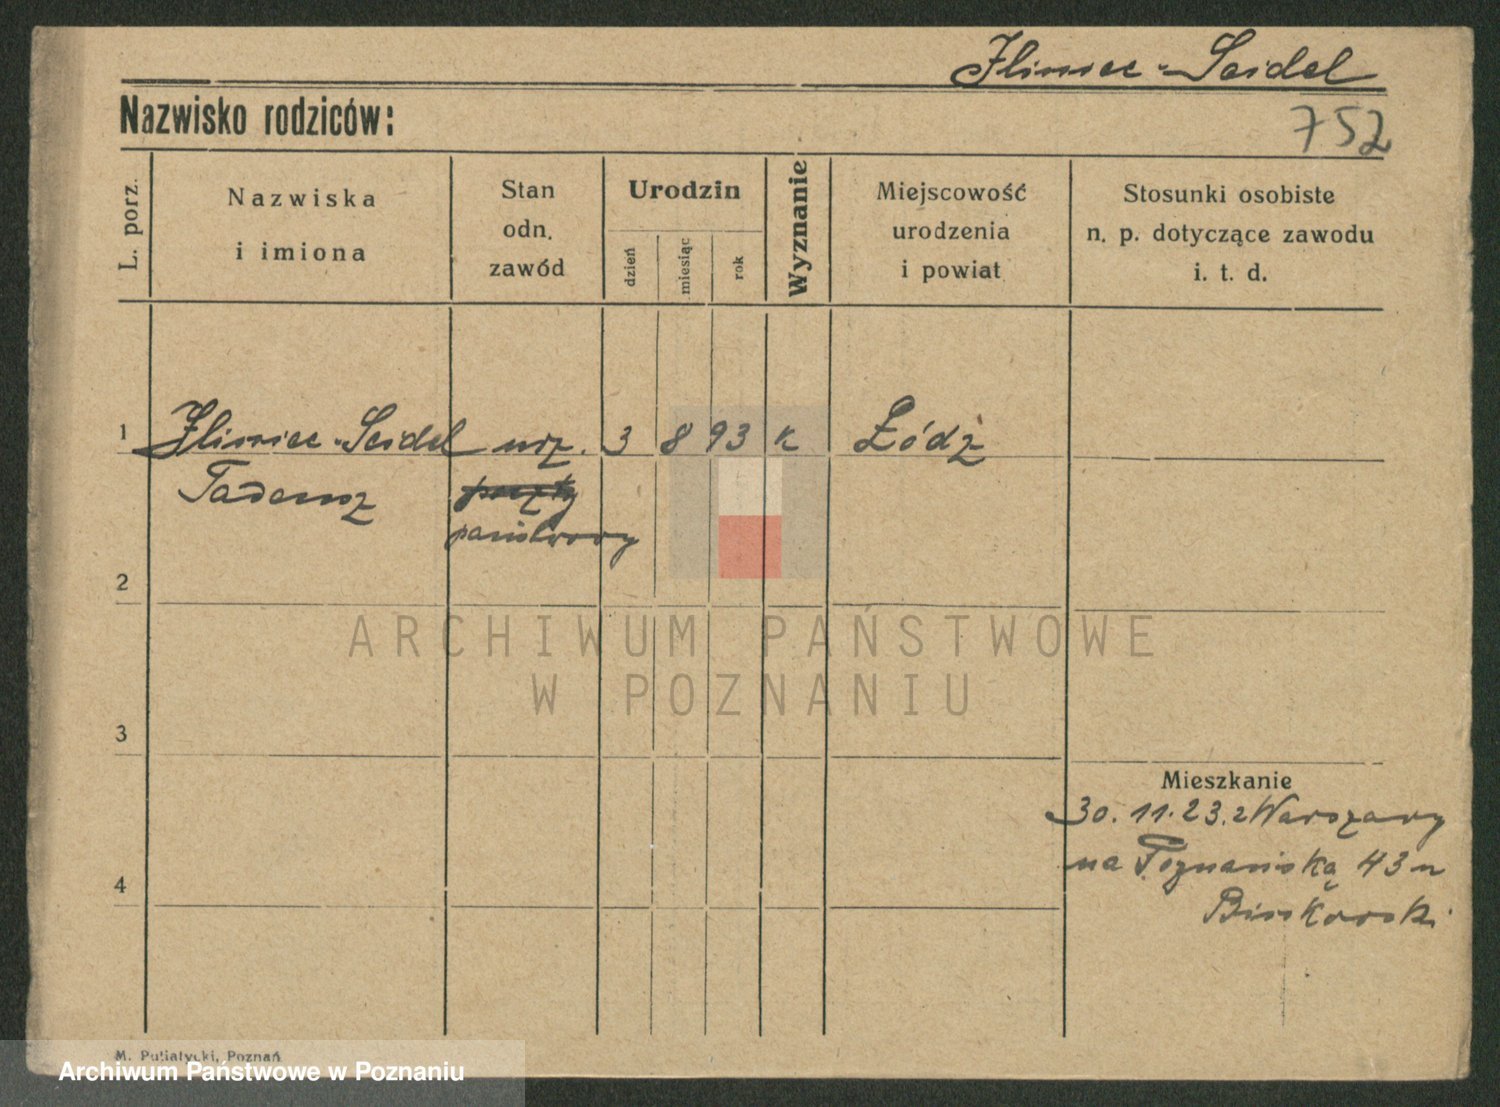 Iliniec-Seidel
Nazwisko rodziców:
752
L. porz.
Nazwiska
i imiona
Stan
odn.
zawód
Urodzin
dzień
miesiąc
rok
Wyznanie
Miejscowość
urodzenia
i powiat
Stosunki osobiste
n. p. dotyczące zawodu
i. t. d.
1 Iliniec-Seidel urz. 3 8 93 k Łódź
Tadeusz poczty
państwowy
2
ARCHIWUM PAŃSTWOWE
W POZNANIU
3
Mieszkanie
30.11.23. z Warszawy
na Poznańską 43 u
4
M. Putiatycki, Poznań
Archiwum Państwowe w Poznaniu